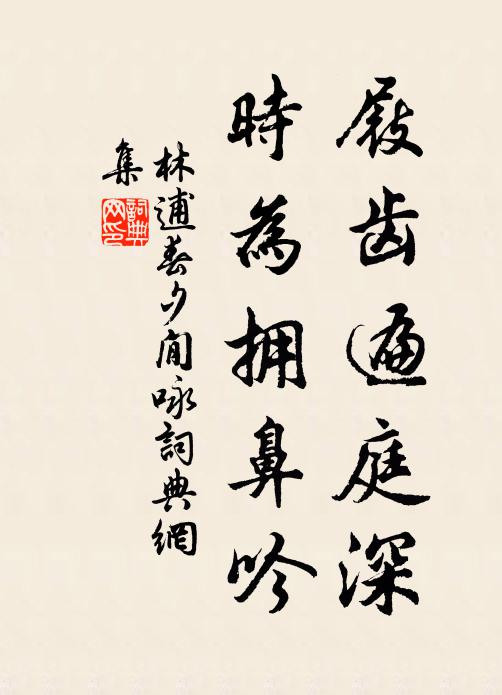 屐齿遍庭深
時為拥鼻吟
林逋春夕閒咏詞典網
集
詞典
网印